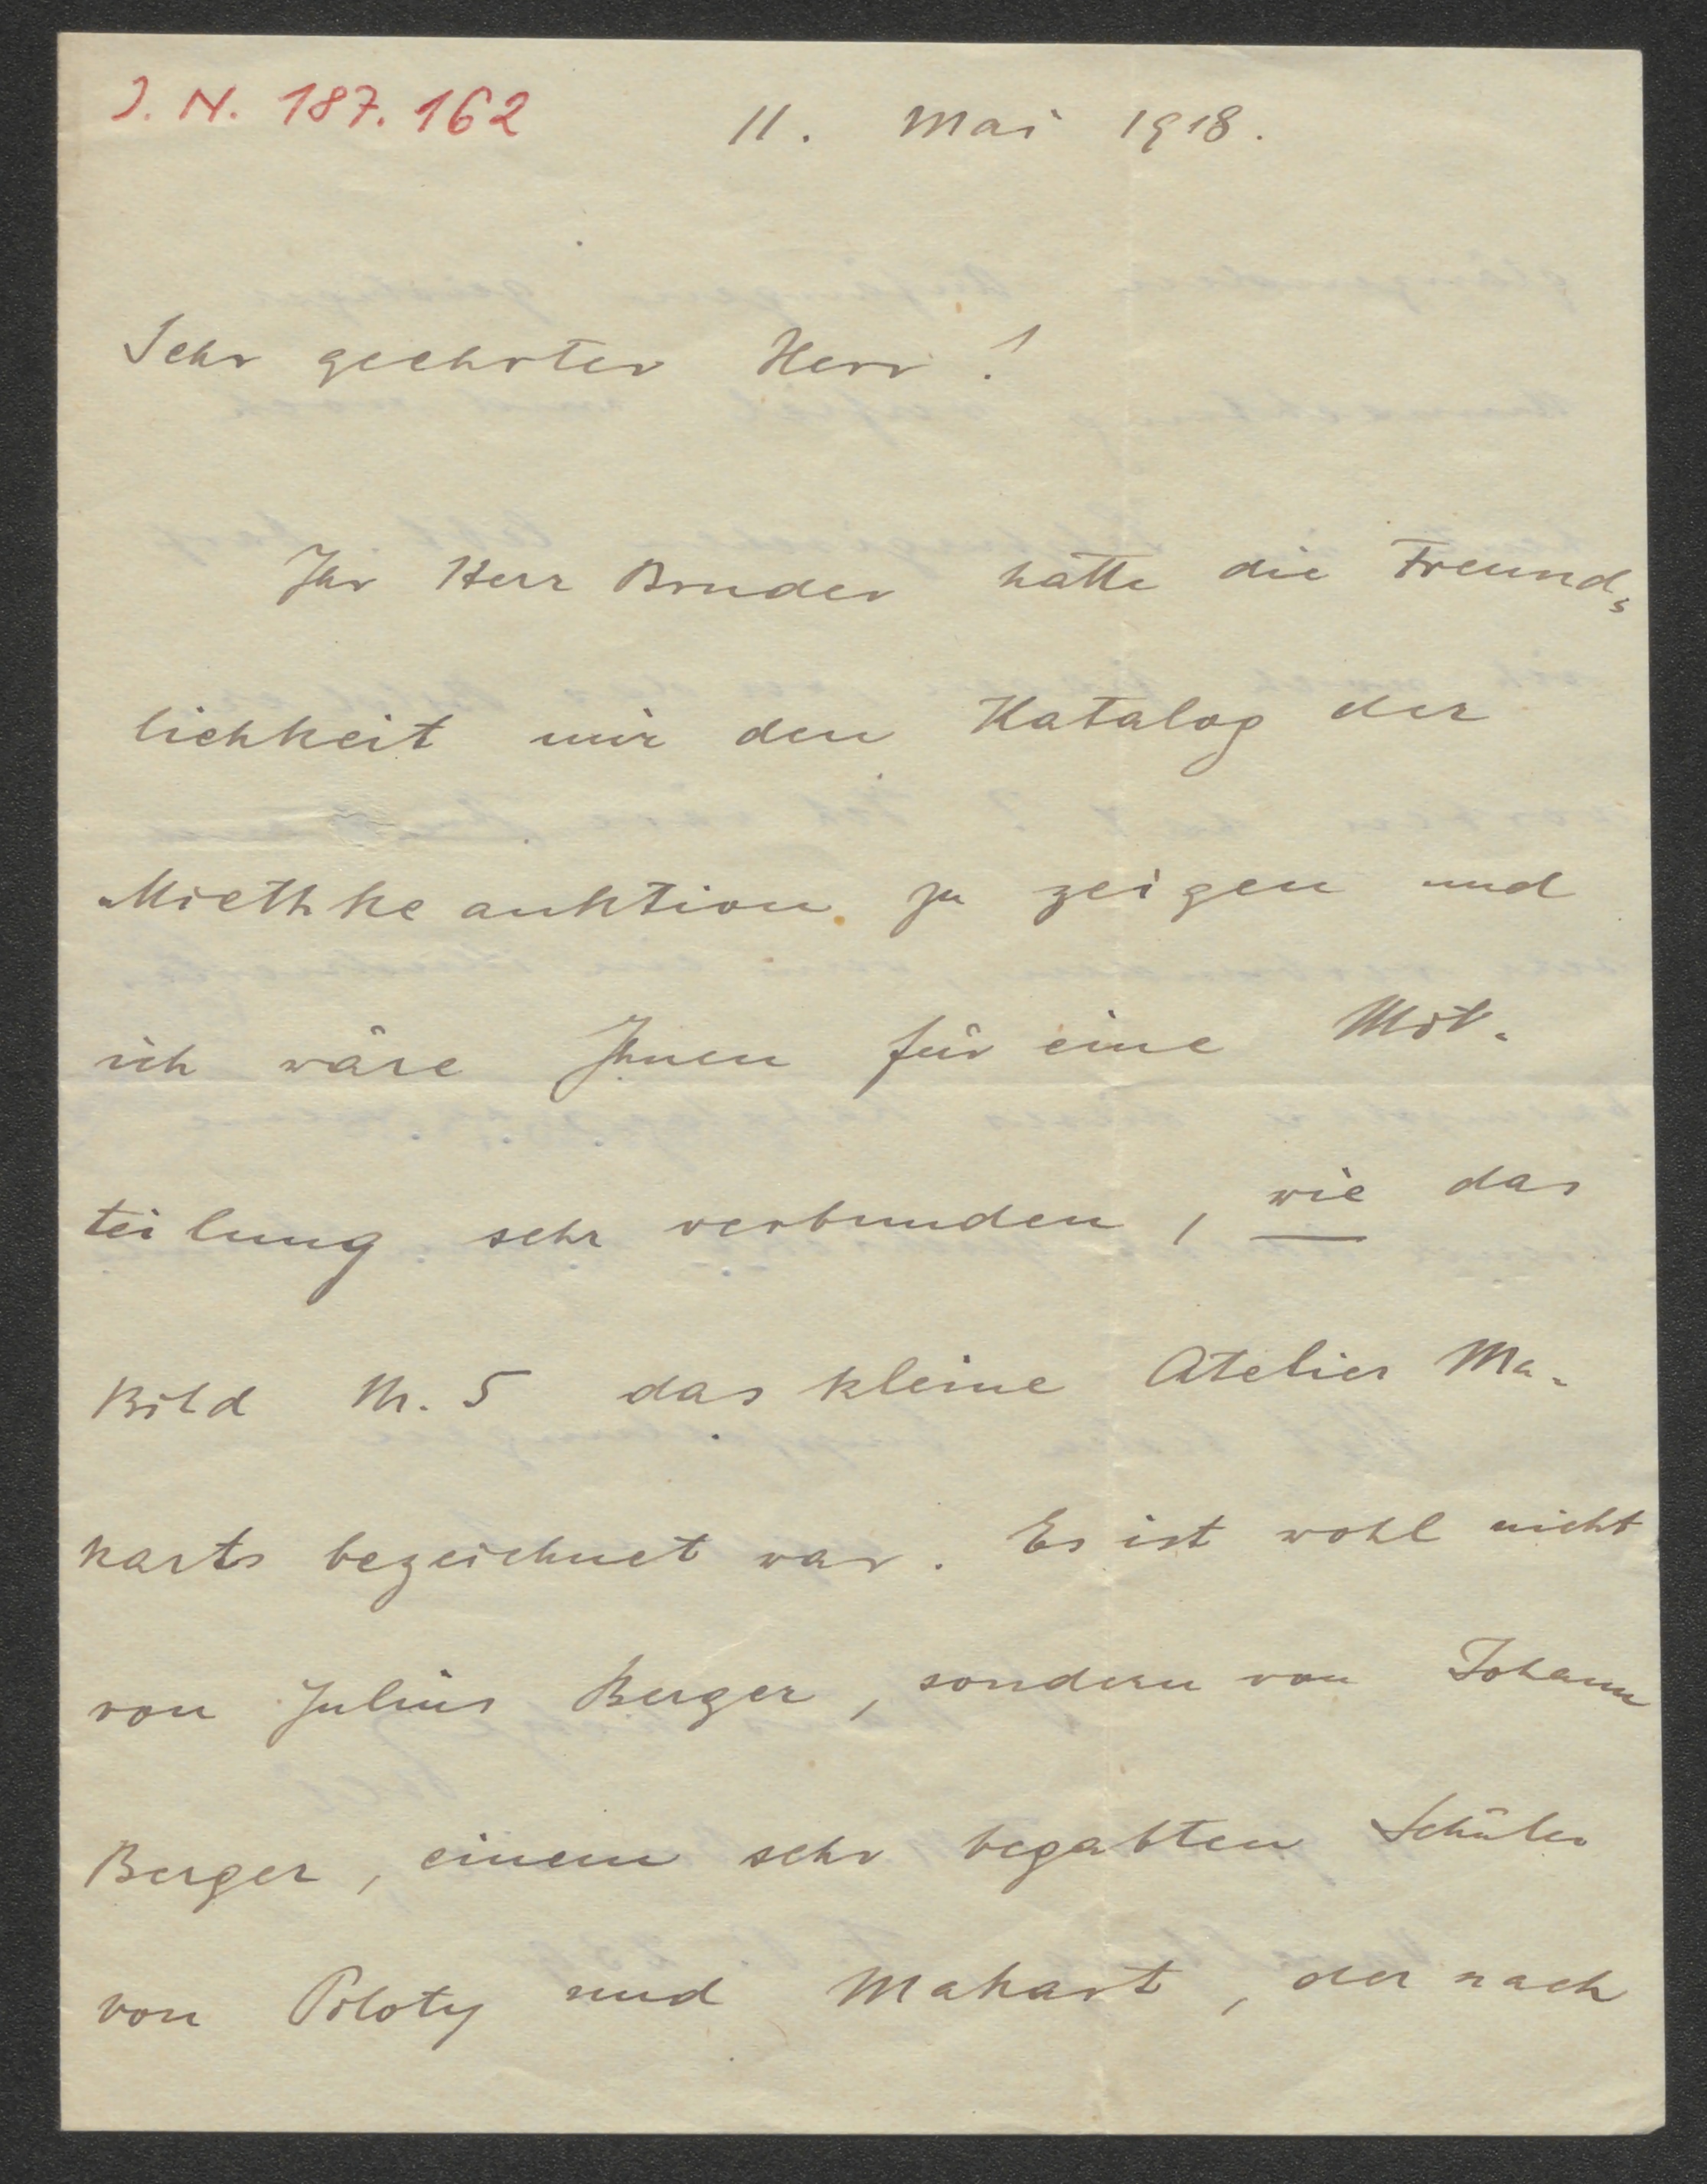 J. N. 187.162
11. Mai 1918.
Sehr geehrter Herr!
Ihr Herr Bruder hatte die Freund-
lichkeit mir den Katalog der
Miethkeauktion zu zeigen und
ich wäre Ihnen für eine Mit-
teilung sehr verbunden, wie das
Bild Nr. 5 das kleine Atelier Ma-
karts bezeichnet war. Es ist wohl nicht
von Julius Berger, sondern von Johann
Berger, einem sehr begabten Schüler
von Piloty und Makart, der nach